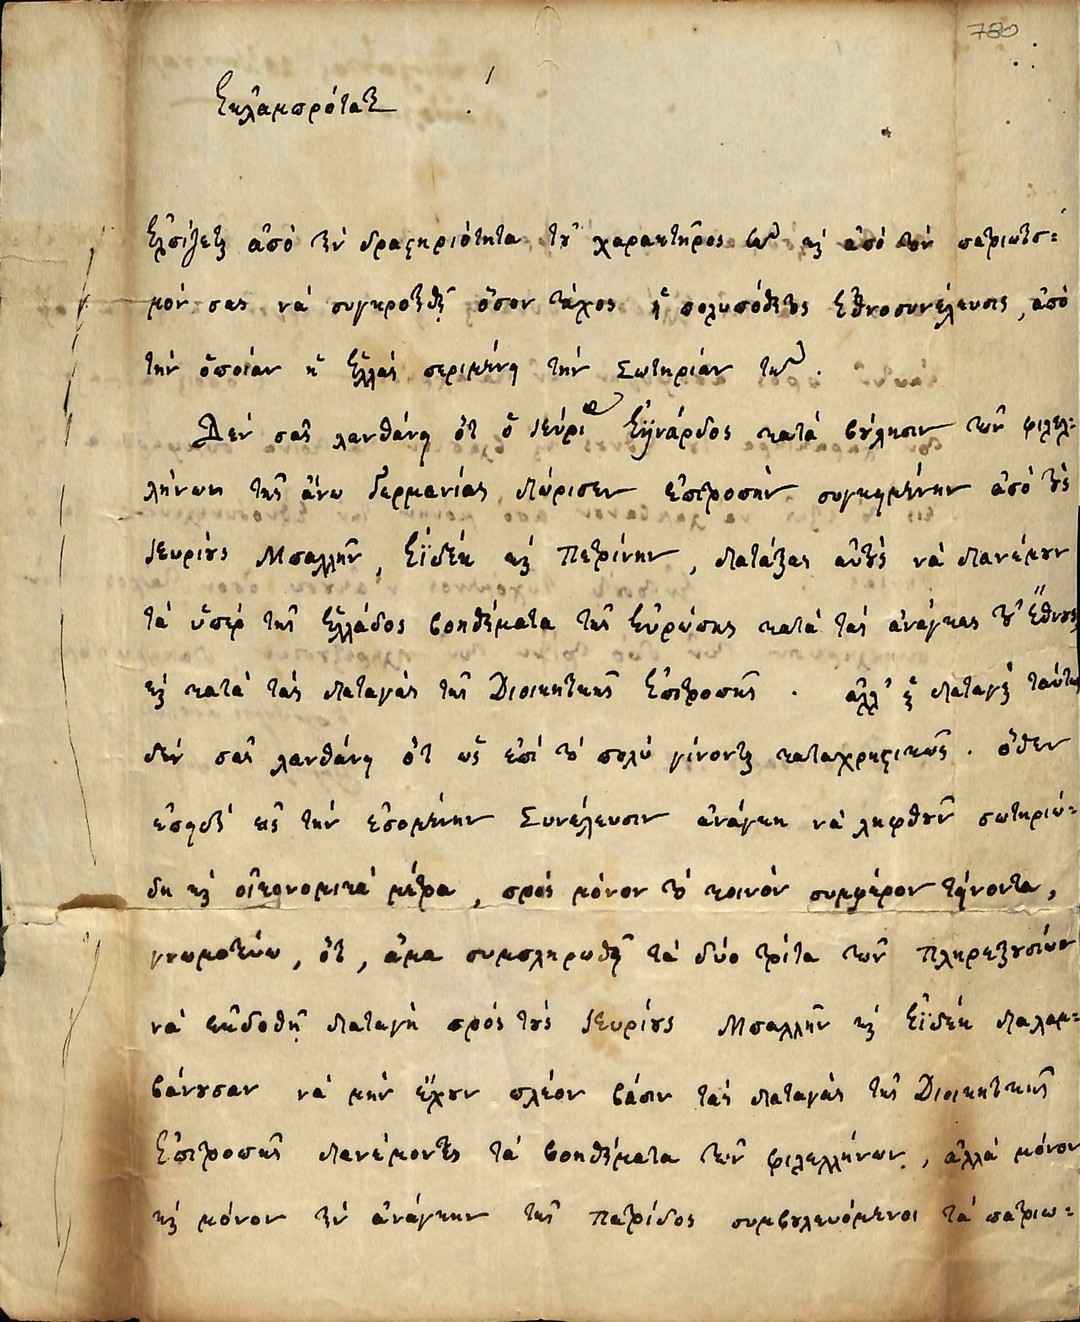 780
Ἐκλαμπρότατε!
Ἐλπίζεται ἀπὸ τὴν δραστηριότητα τοῦ χαρακτῆρος σας καὶ ἀπὸ τὸν πατριωτισ=
μόν σας νὰ συγκροτηθῇ ὅσον τάχος ἡ πολυπόθητος Ἐθνοσυνέλευσις, ἀπὸ
τὴν ὁποίαν ἡ Ἑλλὰς περιμένει τὴν Σωτηρίαν της.
Δὲν σᾶς λανθάνει ὅτι ὁ ἱεύριος Ἐϋνάρδος κατὰ βούλησιν τῶν φιλελ=
λήνων τῆς ἄνω Γερμανίας διώρισεν ἐπιτροπὴν συγκειμένην ἀπὸ τοὺς
ἱευρίους Μπαλλὴν, Ἐϊδὲκ καὶ Πετρίνην, διατάξας αὐτοὺς νὰ διανέμουν
τὰ ὑπὲρ τῆς Ἑλλάδος βοηθήματα τῆς Εὐρώπης κατὰ τὰς ἀνάγκας τοῦ Ἔθνους,
καὶ κατὰ τὰς διαταγὰς τῆς Διοικητικῆς Ἐπιτροπῆς. ἀλλ' αἱ διαταγαὶ ταύτης
δὲν σᾶς λανθάνει ὅτι ὡς ἐπὶ τὸ πολὺ γίνονται καταχρηστικῶς. ὅθεν
ἐπειδὴ εἰς τὴν ἐσομένην Συνέλευσιν ἀνάγκη νὰ ληφθοῦν σωτηριώ=
δη καὶ οἰκονομικὰ μέτρα, πρὸς μόνον τὸ κοινὸν συμφέρον τείνοντα,
γνωμοτεύω, ὅτι, ἅμα συμπληρωθῇ τὰ δύο τρίτα τῶν πληρεξουσίων
νὰ ἐκδοθῇ διαταγὴ πρὸς τοὺς ἱευρίους Μπαλλὴν καὶ Ἐϊδὲκ διαλαμ=
βάνουσαν νὰ μὴν ἔχουν πλέον βάσιν τὰς διαταγὰς τῆς Διοικητικῆς
Ἐπιτροπῆς διανέμοντες τὰ βοηθήματα τῶν φιλελλήνων, ἀλλὰ μόνον
καὶ μόνον τὴν ἀνάγκην τῆς Πατρίδος συμβουλευόμενοι τὰ πατριω=